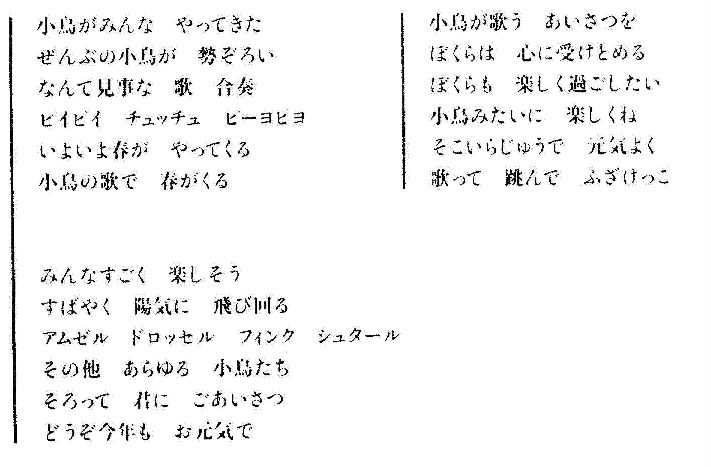 小鳥がみんな　やってきた
ぜんぶの小鳥が　勢ぞろい
なんて見事な　歌　合奏
ピイピイ　チュッチュ　ピーヨピヨ
いよいよ春が　やってくる
小鳥の歌で　春がくる
みんなすごく　楽しそう
すばやく　陽気に　飛び回る
アムゼル　ドロッセル　フィンク　シュタール
その他　あらゆる　小鳥たち
そろって　君に　ごあいさつ
どうぞ今年も　お元気で
小鳥が歌う　あいさつを
ぼくらは　心に受けとめる
ぼくらも　楽しく過ごしたい
小鳥みたいに　楽しくね
そこいらじゅうで　元気よく
歌って　跳んで　ふざけっこ